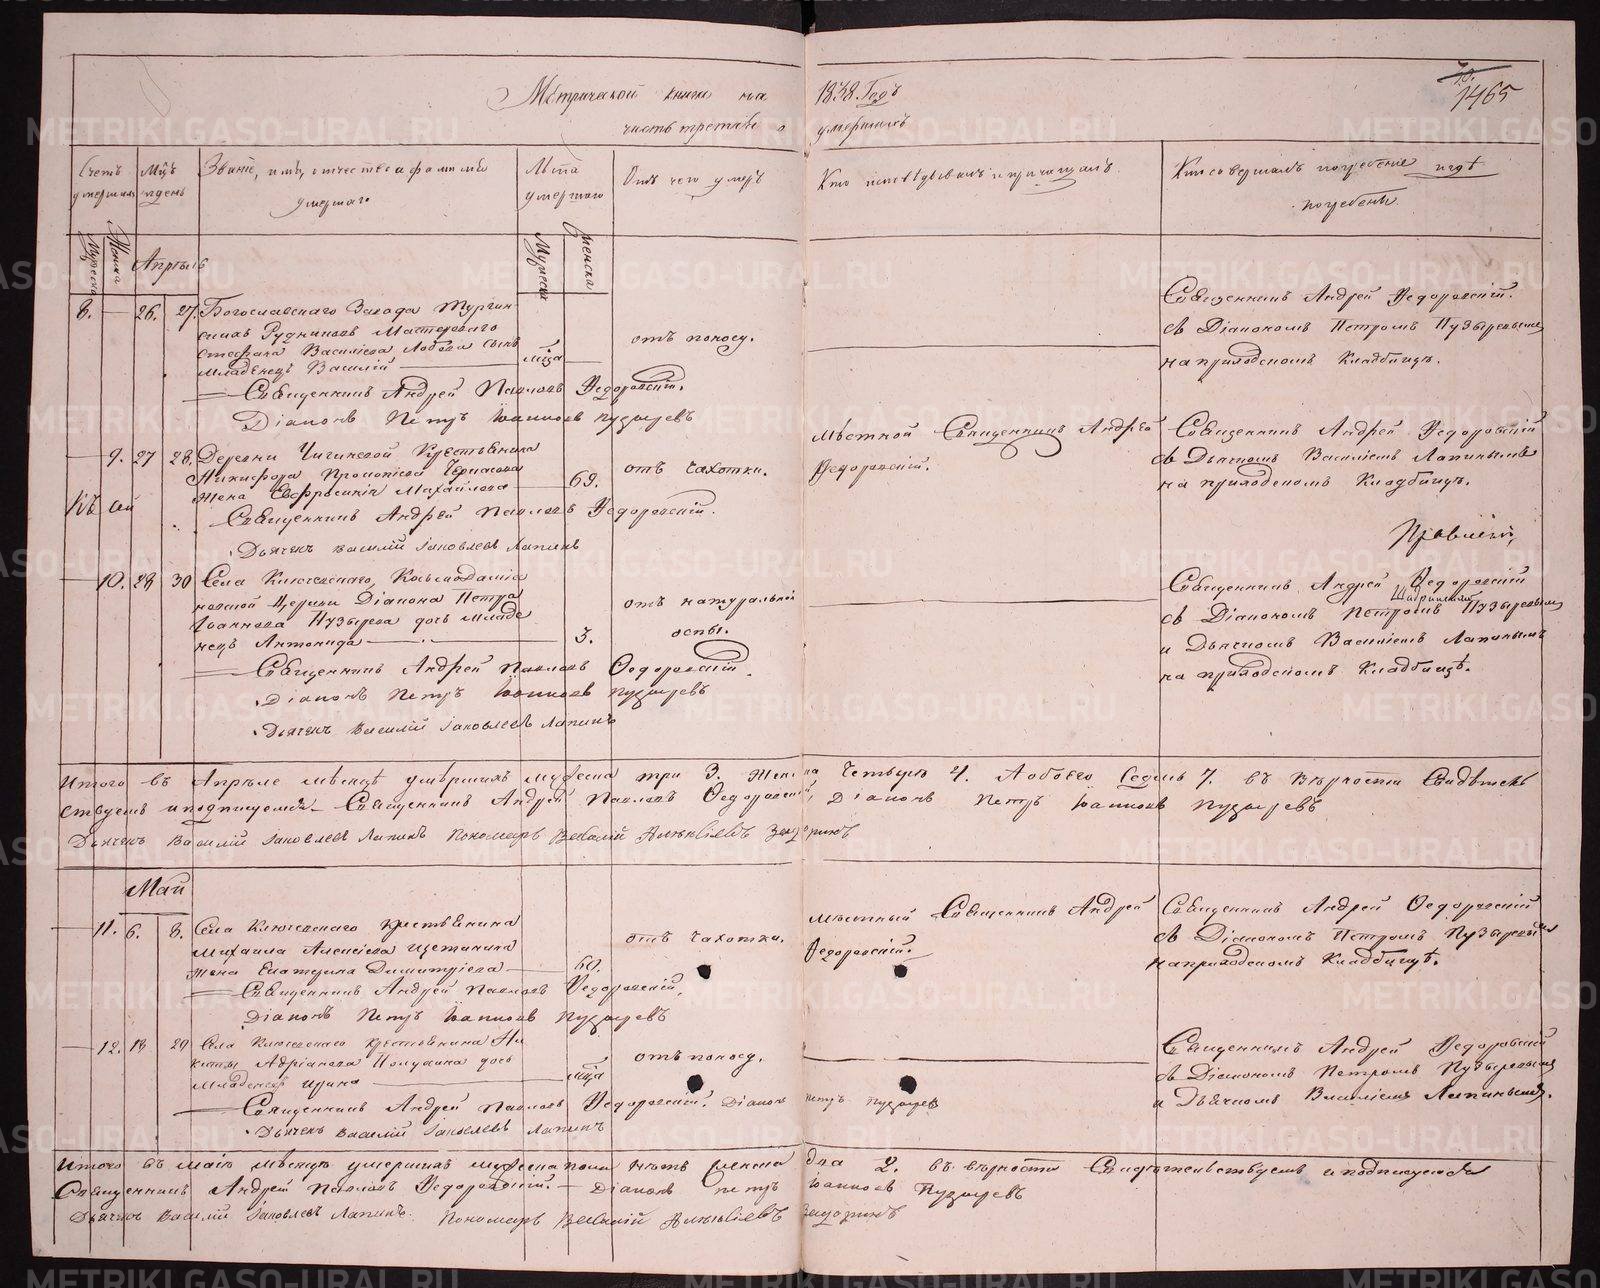 Метрической книги на 1838 Годъ
часть третья о умершихъ
1465
Счетъ умершихъ
Мужеска
Женска
Мцъ и день
Званіе, имя, отчество и фамилія умершаго
Лѣта умершаго
Мужеска
Женска
Отъ чего умеръ
Кто исповѣдывалъ и причащалъ.
Кто совершалъ погребеніе и гдѣ погребенъ.
Апрѣль
8. — 26. 27. Богословскаго Завода Турьин
скихъ Рудниковъ Мастероваго
Стефана Васильева сынъ
младенецъ Василій
отъ поносу.
Священникъ Андрей Федоровскій.
съ Діакономъ Петромъ Пузыревымъ
на приходскомъ Кладбищѣ.
Священникъ Андрей Павловъ Федоровскій.
Діаконъ Петръ Іоанновъ Пузыревъ
— 9. 27 28. Деревни Крестьянина
Никифора Прокопьева
жена Евфросинія Михайлова 69.
отъ чахотки.
мѣстной Священникъ Андрей
Федоровскій.
Священникъ Андрей Федоровскій
съ Дьячкомъ Василіемъ Лапинымъ
на приходскомъ Кладбищѣ.
Священникъ Андрей Павловъ Федоровскій.
Дьячекъ Василій Іаковлевъ Лапинъ
— 10. 28 30 Села Ключевскаго Космодаміа
новской Церкви Діакона Петра
Іоаннова Пузырева дочь младе
нецъ Антонида 3.
отъ натуральной
оспы.
Священникъ Андрей Федоровскій
съ Діакономъ Петромъ Пузыревымъ
и Дьячкомъ Василіемъ Лапинымъ
на приходскомъ Кладбищѣ.
Священникъ Андрей Павловъ Ѳедоровскій.
Діаконъ Петръ Іоанновъ Пузыревъ
Дьячекъ Василій Іаковлевъ Лапинъ
Итого въ Апрѣле мѣсяцѣ умершихъ мужеска три 3. женска четыре 4. А обоего Седмь 7. въ вѣрности Свидѣтель
ствуемъ и подписуемся Священникъ Андрей Павловъ Ѳедоровскій, Діаконъ Петръ Іоанновъ Пузыревъ
Дьячекъ Василій Іаковлевъ Лапинъ Пономарь
Май
— 11. 6. 8. Села Ключевскаго крестьянина
Михаила Алексіева Щетинина
жена Екатерина Димитріева 60.
отъ чахотки.
мѣстный Священникъ Андрей
Федоровскій.
Священникъ Андрей Ѳедоровскій
съ Діакономъ Петромъ Пузыревымъ
на приходскомъ Кладбищѣ.
Священникъ Андрей Павловъ Федоровскій.
Діаконъ Петръ Іоанновъ Пузыревъ
— 12. 18 20 Села Ключевскаго крестьянина Ни
киты Адріанова дочь
младенецъ Ирина
отъ поносу.
Священникъ Андрей Федоровскій
съ Діакономъ Петромъ Пузыревымъ
и Дьячкомъ Василіемъ Лапинымъ.
Священникъ Андрей Павловъ Федоровскій. Діаконъ Петръ Пузыревъ
Дьячекъ Василій Іаковлевъ Лапинъ
Итого въ маіѣ мѣсяцѣ умершихъ мужеска пола нѣтъ женска два 2. въ вѣрности Свидѣтельствуемъ и подписуемся
Священникъ Андрей Павловъ Федоровскій. — Діаконъ Петръ Іоанновъ Пузыревъ
Дьячекъ Василій Іаковлевъ Лапинъ. Пономарь
METRIKI.GASO-URAL.RU